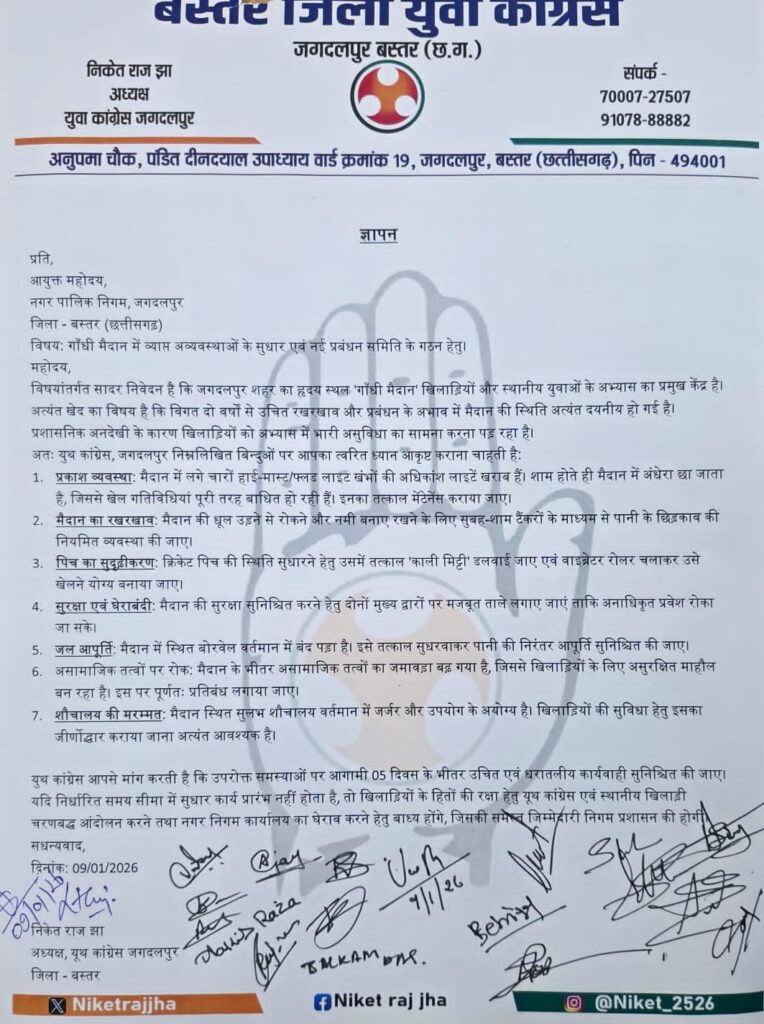 बस्तर जिला युवा कांग्रेस
जगदलपुर बस्तर (छ.ग.)
निकेत राज झा
अध्यक्ष
युवा कांग्रेस जगदलपुर
संपर्क -
70007-27507
91078-88882
अनुपमा चौक, पंडित दीनदयाल उपाध्याय वार्ड क्रमांक 19, जगदलपुर, बस्तर (छत्तीसगढ़), पिन - 494001
ज्ञापन
प्रति,
आयुक्त महोदय,
नगर पालिक निगम, जगदलपुर
जिला - बस्तर (छत्तीसगढ़)
विषय: गाँधी मैदान में व्याप्त अव्यवस्थाओं के सुधार एवं नई प्रबंधन समिति के गठन हेतु।
महोदय,
विषयांतर्गत सादर निवेदन है कि जगदलपुर शहर का हृदय स्थल 'गाँधी मैदान' खिलाड़ियों और स्थानीय युवाओं के अभ्यास का प्रमुख केंद्र है।
अत्यंत खेद का विषय है कि विगत दो वर्षों से उचित रखरखाव और प्रबंधन के अभाव में मैदान की स्थिति अत्यंत दयनीय हो गई है।
प्रशासनिक अनदेखी के कारण खिलाड़ियों को अभ्यास में भारी असुविधा का सामना करना पड़ रहा है।
अतः यूथ कांग्रेस, जगदलपुर निम्नलिखित बिन्दुओं पर आपका त्वरित ध्यान आकृष्ट कराना चाहती है:
1. प्रकाश व्यवस्था: मैदान में लगे चारों हाई-मास्ट/फ्लड लाइट खंभों की अधिकांश लाइटें खराब हैं। शाम होते ही मैदान में अंधेरा छा जाता
है, जिससे खेल गतिविधियां पूरी तरह बाधित हो रही हैं। इनका तत्काल मेंटेनेंस कराया जाए।
2. मैदान का रखरखाव: मैदान की धूल उड़ने से रोकने और नमी बनाए रखने के लिए सुबह-शाम टैंकरों के माध्यम से पानी के छिड़काव की
नियमित व्यवस्था की जाए।
3. पिच का सुदृढ़ीकरण: क्रिकेट पिच की स्थिति सुधारने हेतु उसमें तत्काल 'काली मिट्टी' डलवाई जाए एवं वाइब्रेटर रोलर चलाकर उसे
खेलने योग्य बनाया जाए।
4. सुरक्षा एवं घेराबंदी: मैदान की सुरक्षा सुनिश्चित करने हेतु दोनों मुख्य द्वारों पर मजबूत ताले लगाए जाएं ताकि अनाधिकृत प्रवेश रोका
जा सके।
5. जल आपूर्ति: मैदान में स्थित बोरवेल वर्तमान में बंद पड़ा है। इसे तत्काल सुधरवाकर पानी की निरंतर आपूर्ति सुनिश्चित की जाए।
6. असामाजिक तत्वों पर रोक: मैदान के भीतर असामाजिक तत्वों का जमावड़ा बढ़ गया है, जिससे खिलाड़ियों के लिए असुरक्षित माहौल
बन रहा है। इस पर पूर्णतः प्रतिबंध लगाया जाए।
7. शौचालय की मरम्मत: मैदान स्थित सुलभ शौचालय वर्तमान में जर्जर और उपयोग के अयोग्य है। खिलाड़ियों की सुविधा हेतु इसका
जीर्णोद्धार कराया जाना अत्यंत आवश्यक है।
यूथ कांग्रेस आपसे मांग करती है कि उपरोक्त समस्याओं पर आगामी 05 दिवस के भीतर उचित एवं धरातलीय कार्यवाही सुनिश्चित की जाए।
यदि निर्धारित समय सीमा में सुधार कार्य प्रारंभ नहीं होता है, तो खिलाड़ियों के हितों की रक्षा हेतु यूथ कांग्रेस एवं स्थानीय खिलाड़ी
चरणबद्ध आंदोलन करने तथा नगर निगम कार्यालय का घेराव करने हेतु बाध्य होंगे, जिसकी समस्त जिम्मेदारी निगम प्रशासन की होगी
सधन्यवाद,
दिनांक: 09/01/2026
Ajay
9/1/26
09/01/26
Raza
BALKAM DAS.
निकेत राज झा
अध्यक्ष, यूथ कांग्रेस जगदलपुर
जिला - बस्तर
Niketrajjha
Niket raj jha
@Niket_2526